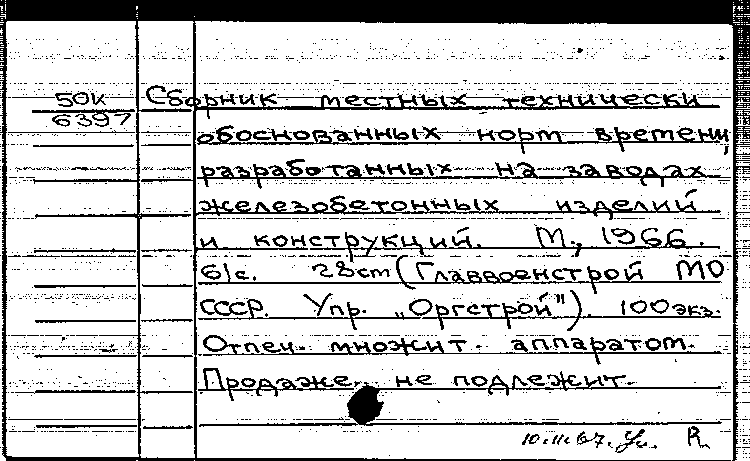 50К
6397
Сборник местных технически
обоснованных норм времени,
разработанных на заводах
железобетонных изделий
и конструкций. М., 1966.
61с. 28cm (Главвоенстрой МО
СССР. Упр. „Оргстрой"). 100экз.
Отпеч. множит. аппаратом.
Продаже не подлежит.
10.11.67. R